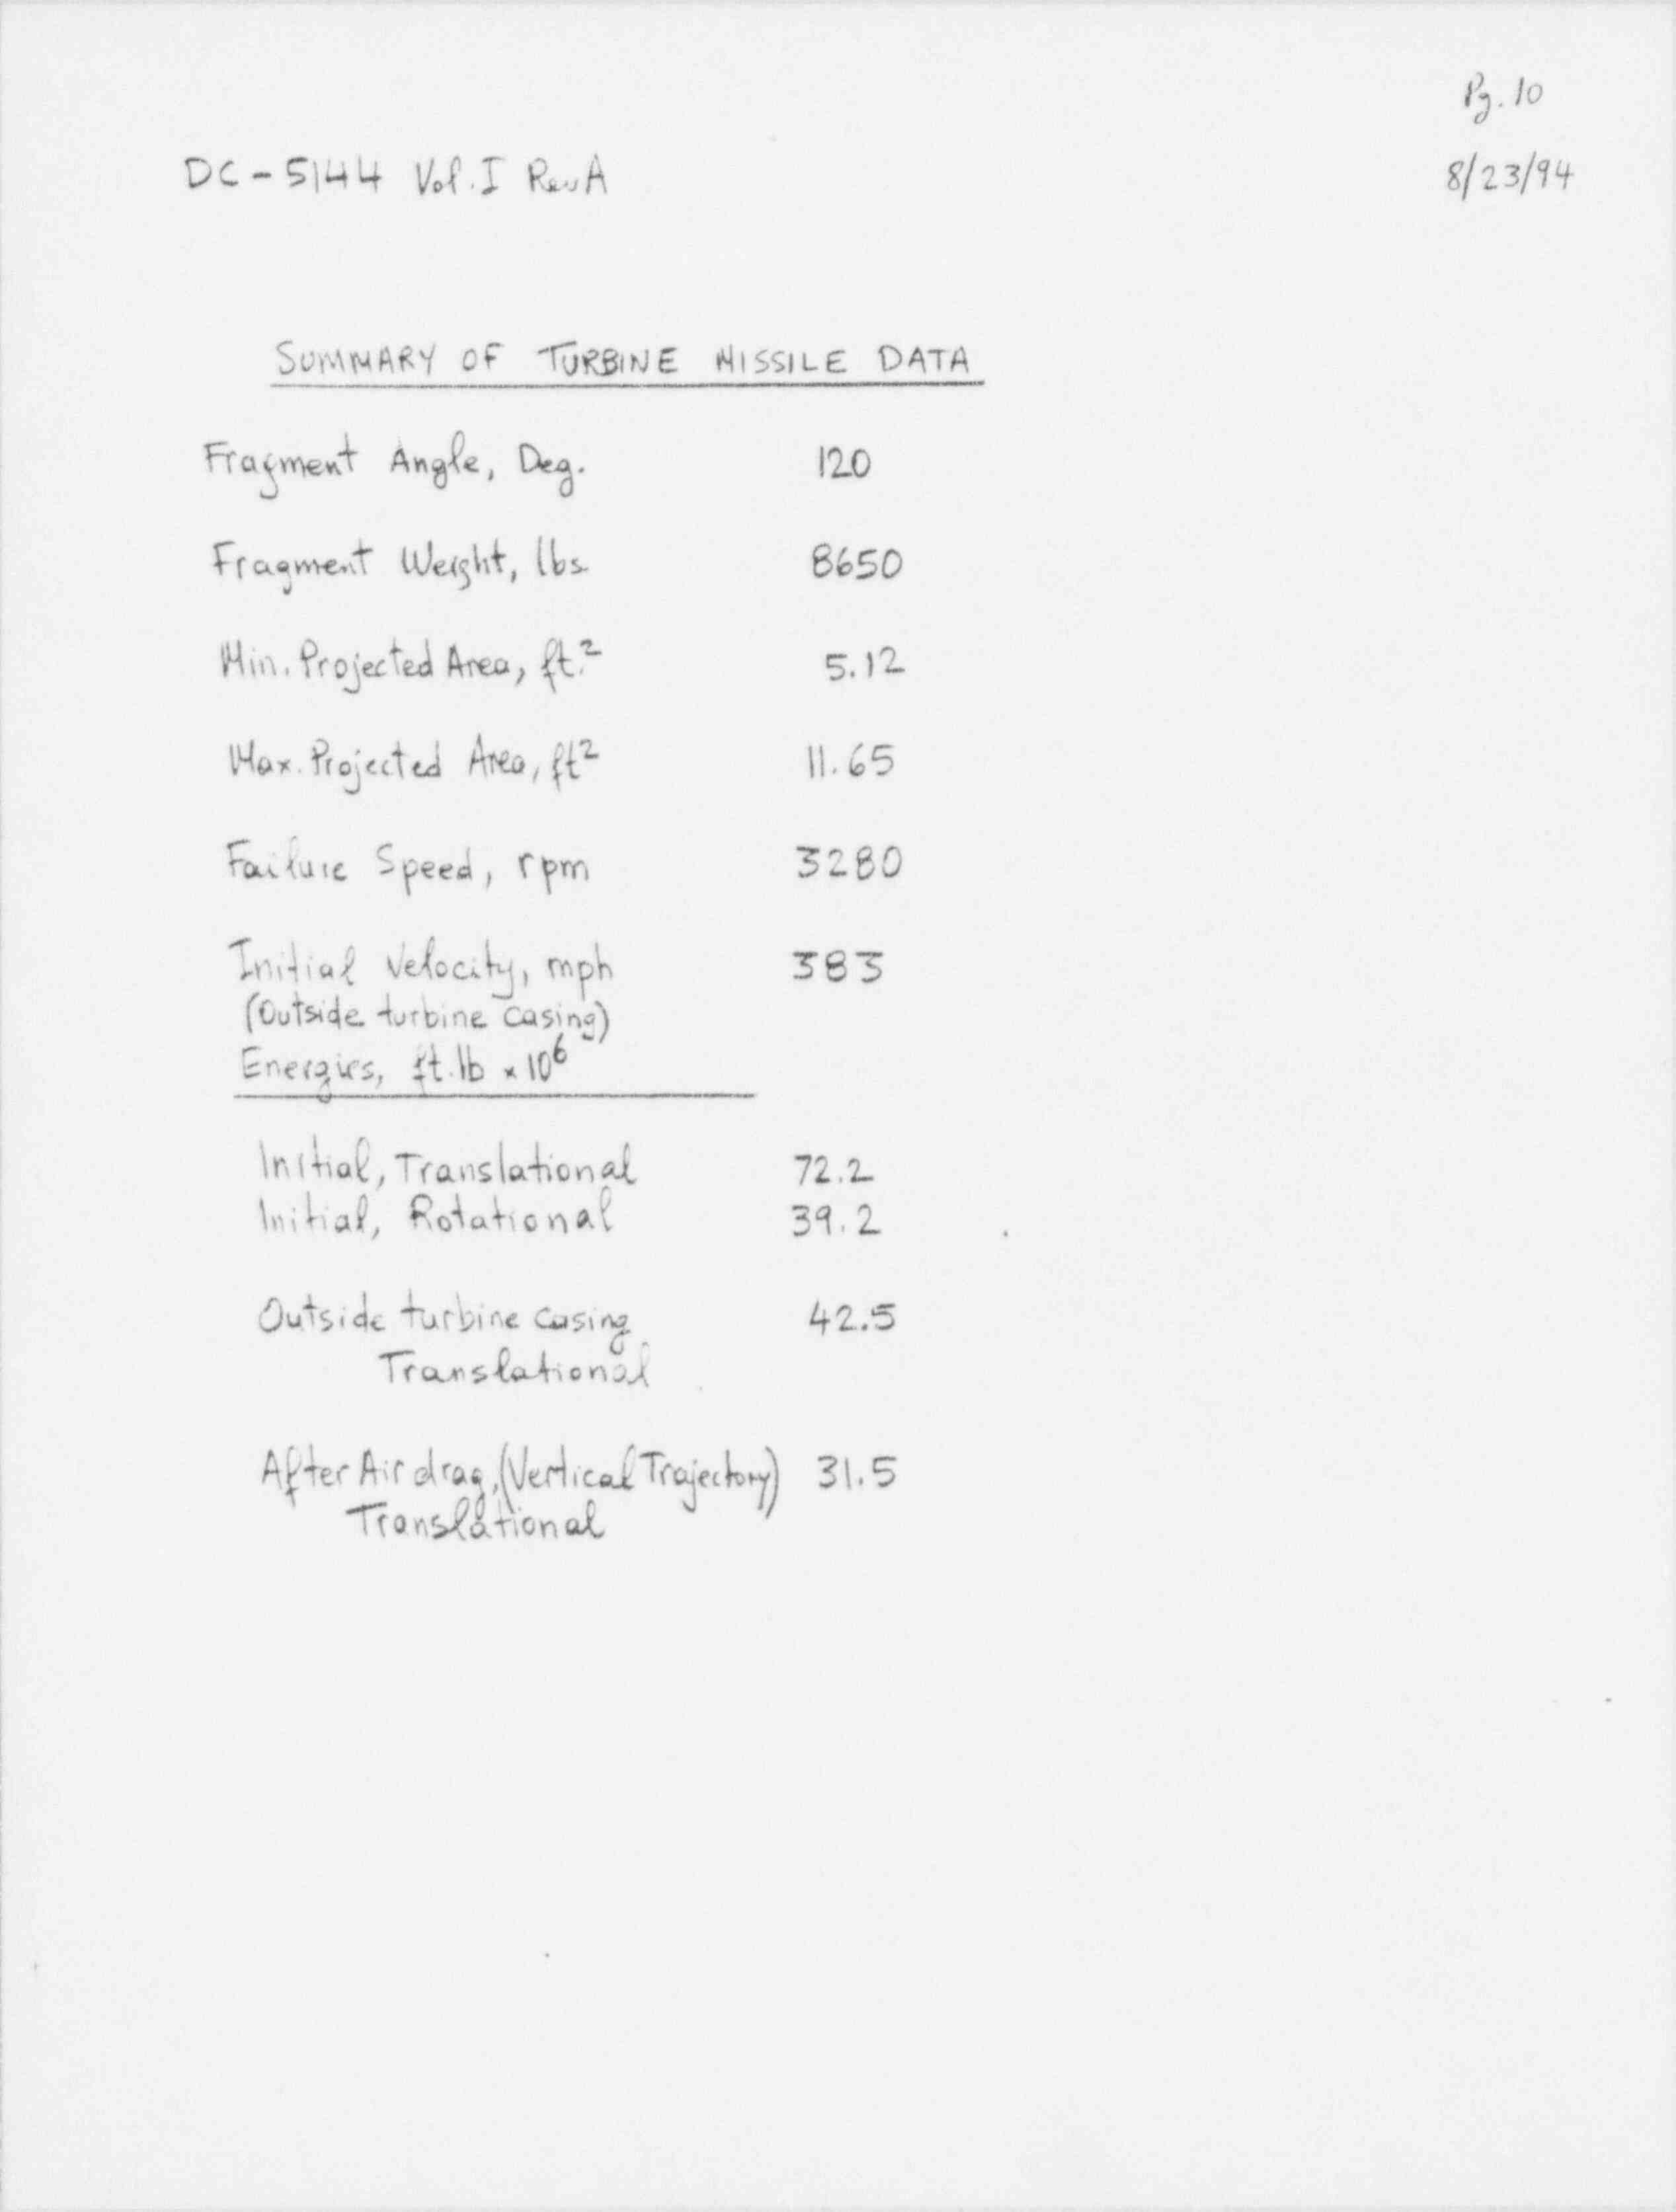 Pg. 10
DC-5144 Vol. I Rev A 8/23/94
SUMMARY OF TURBINE MISSILE DATA
Fragment Angle, Deg. 120
Fragment Weight, lbs. 8650
Min. Projected Area, ft.² 5.12
Max. Projected Area, ft² 11.65
Failure Speed, rpm 3280
Initial Velocity, mph 383
(Outside turbine casing)
Energies, ft.lb × 10⁶
Initial, Translational 72.2
Initial, Rotational 39.2
Outside turbine casing 42.5
Translational
After Air drag, (Vertical Trajectory) 31.5
Translational